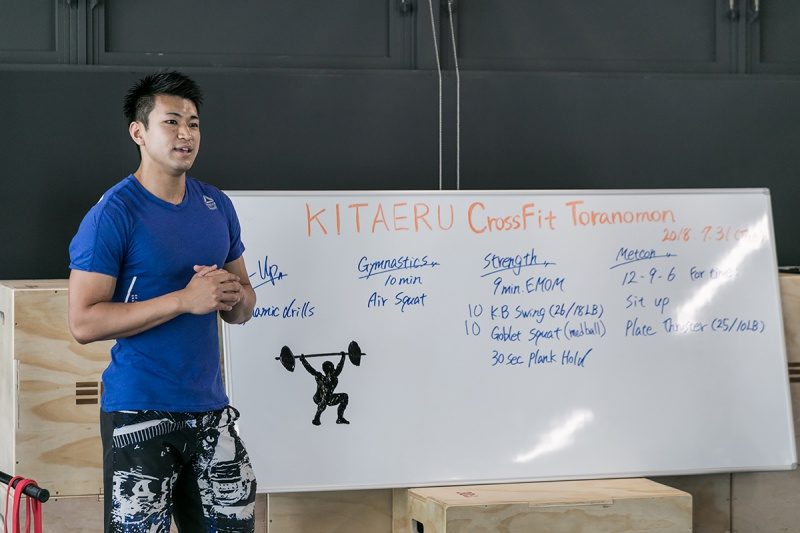 KITAERU CrossFit Toranomon
2018. 7.31
Up
Gymnastics
10 min
Air Squat
Strength
9 min. EMOM
10 KB Swing (26/18LB)
10 Goblet Squat (medball)
30 sec Plank Hold
Metcon
12-9-6 For time
Sit up
Plate Thruster (25/10LB)
drills